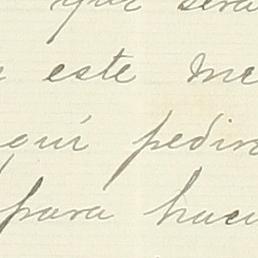 que será
este me
quí pedir
para hace